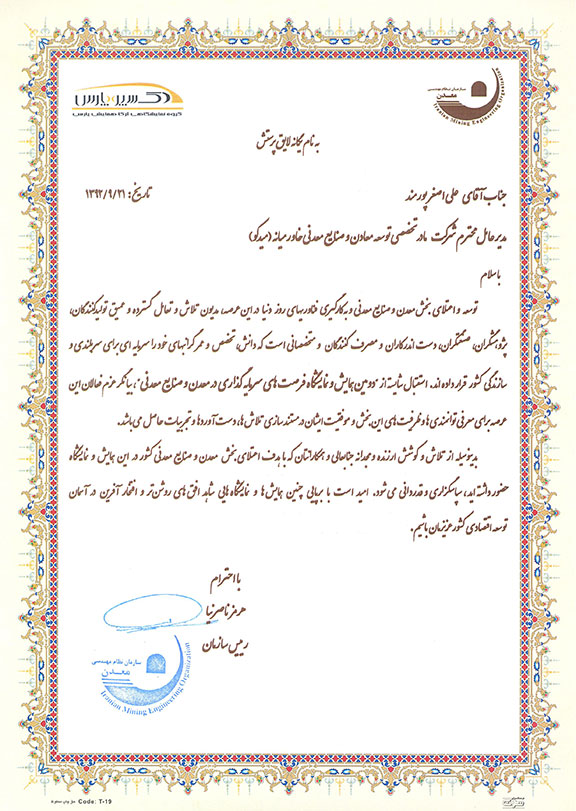 سازمان نظام مهندسی
معدن
Iranian Mining Engineering Organization
اکسیر پارس
گروه نمایشگاهی آرکا همایش پارس
به نام یگانه لایق پرستش
جناب آقای علی اصغر پورمند
تاریخ: ۱۳۹۲/۹/۲۱
مدیرعامل محترم شرکت مادر تخصصی توسعه معادن و صنایع معدنی خاورمیانه (میدکو)
با سلام
توسعه و اعتلای بخش معدن و صنایع معدنی و به کارگیری فناوریهای روز دنیا در این عرصه، مدیون تلاش و تعامل گسترده و عمیق تولیدکنندگان،
پژوهشگران، صنعتگران، دست اندرکاران و مصرف کنندگان و متخصصانی است که دانش، تخصص و عمر گرانبهای خود را سرمایه ای برای سربلندی و
سازندگی کشور قرار داده اند. استقبال شایسته از "دومین همایش و نمایشگاه فرصت های سرمایه گذاری در معدن و صنایع معدنی"، بیانگر عزم فعالان این
عرصه برای معرفی توانمندی ها و ظرفیت های این بخش و موفقیت ایشان در مستندسازی تلاش ها، دست آوردها و تجربیات حاصل می باشد.
بدینوسیله از تلاش و کوشش ارزنده و مجدانه جنابعالی و همکارانتان که با هدف اعتلای بخش معدن و صنایع معدنی کشور در این همایش و نمایشگاه
حضور داشته اند، سپاسگزاری و قدردانی می شود. امید است با برپایی چنین همایش ها و نمایشگاه هایی شاهد افق های روشن تر و افتخار آفرین در آسمان
توسعه اقتصادی کشور عزیزمان باشیم.
با احترام
هرمز ناصرنیا
رییس سازمان
سازمان نظام مهندسی
معدن
Iranian Mining Engineering Organization
Code: T-19